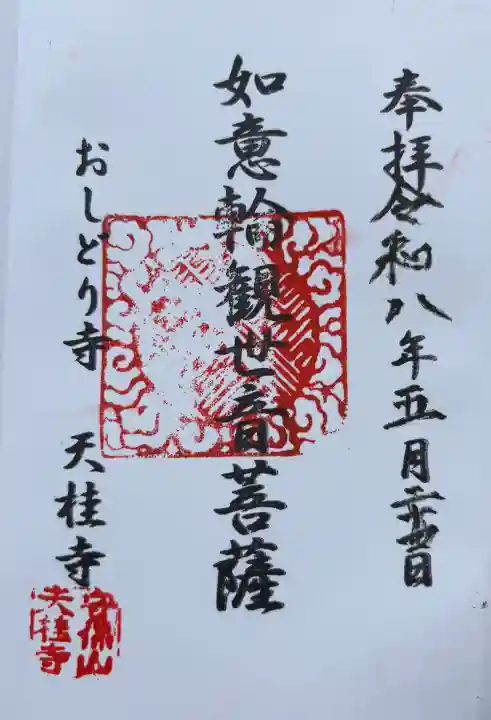 奉拝 令和八年五月二十四日
如意輪観世音菩薩
おしどり寺 天桂寺
天桂寺